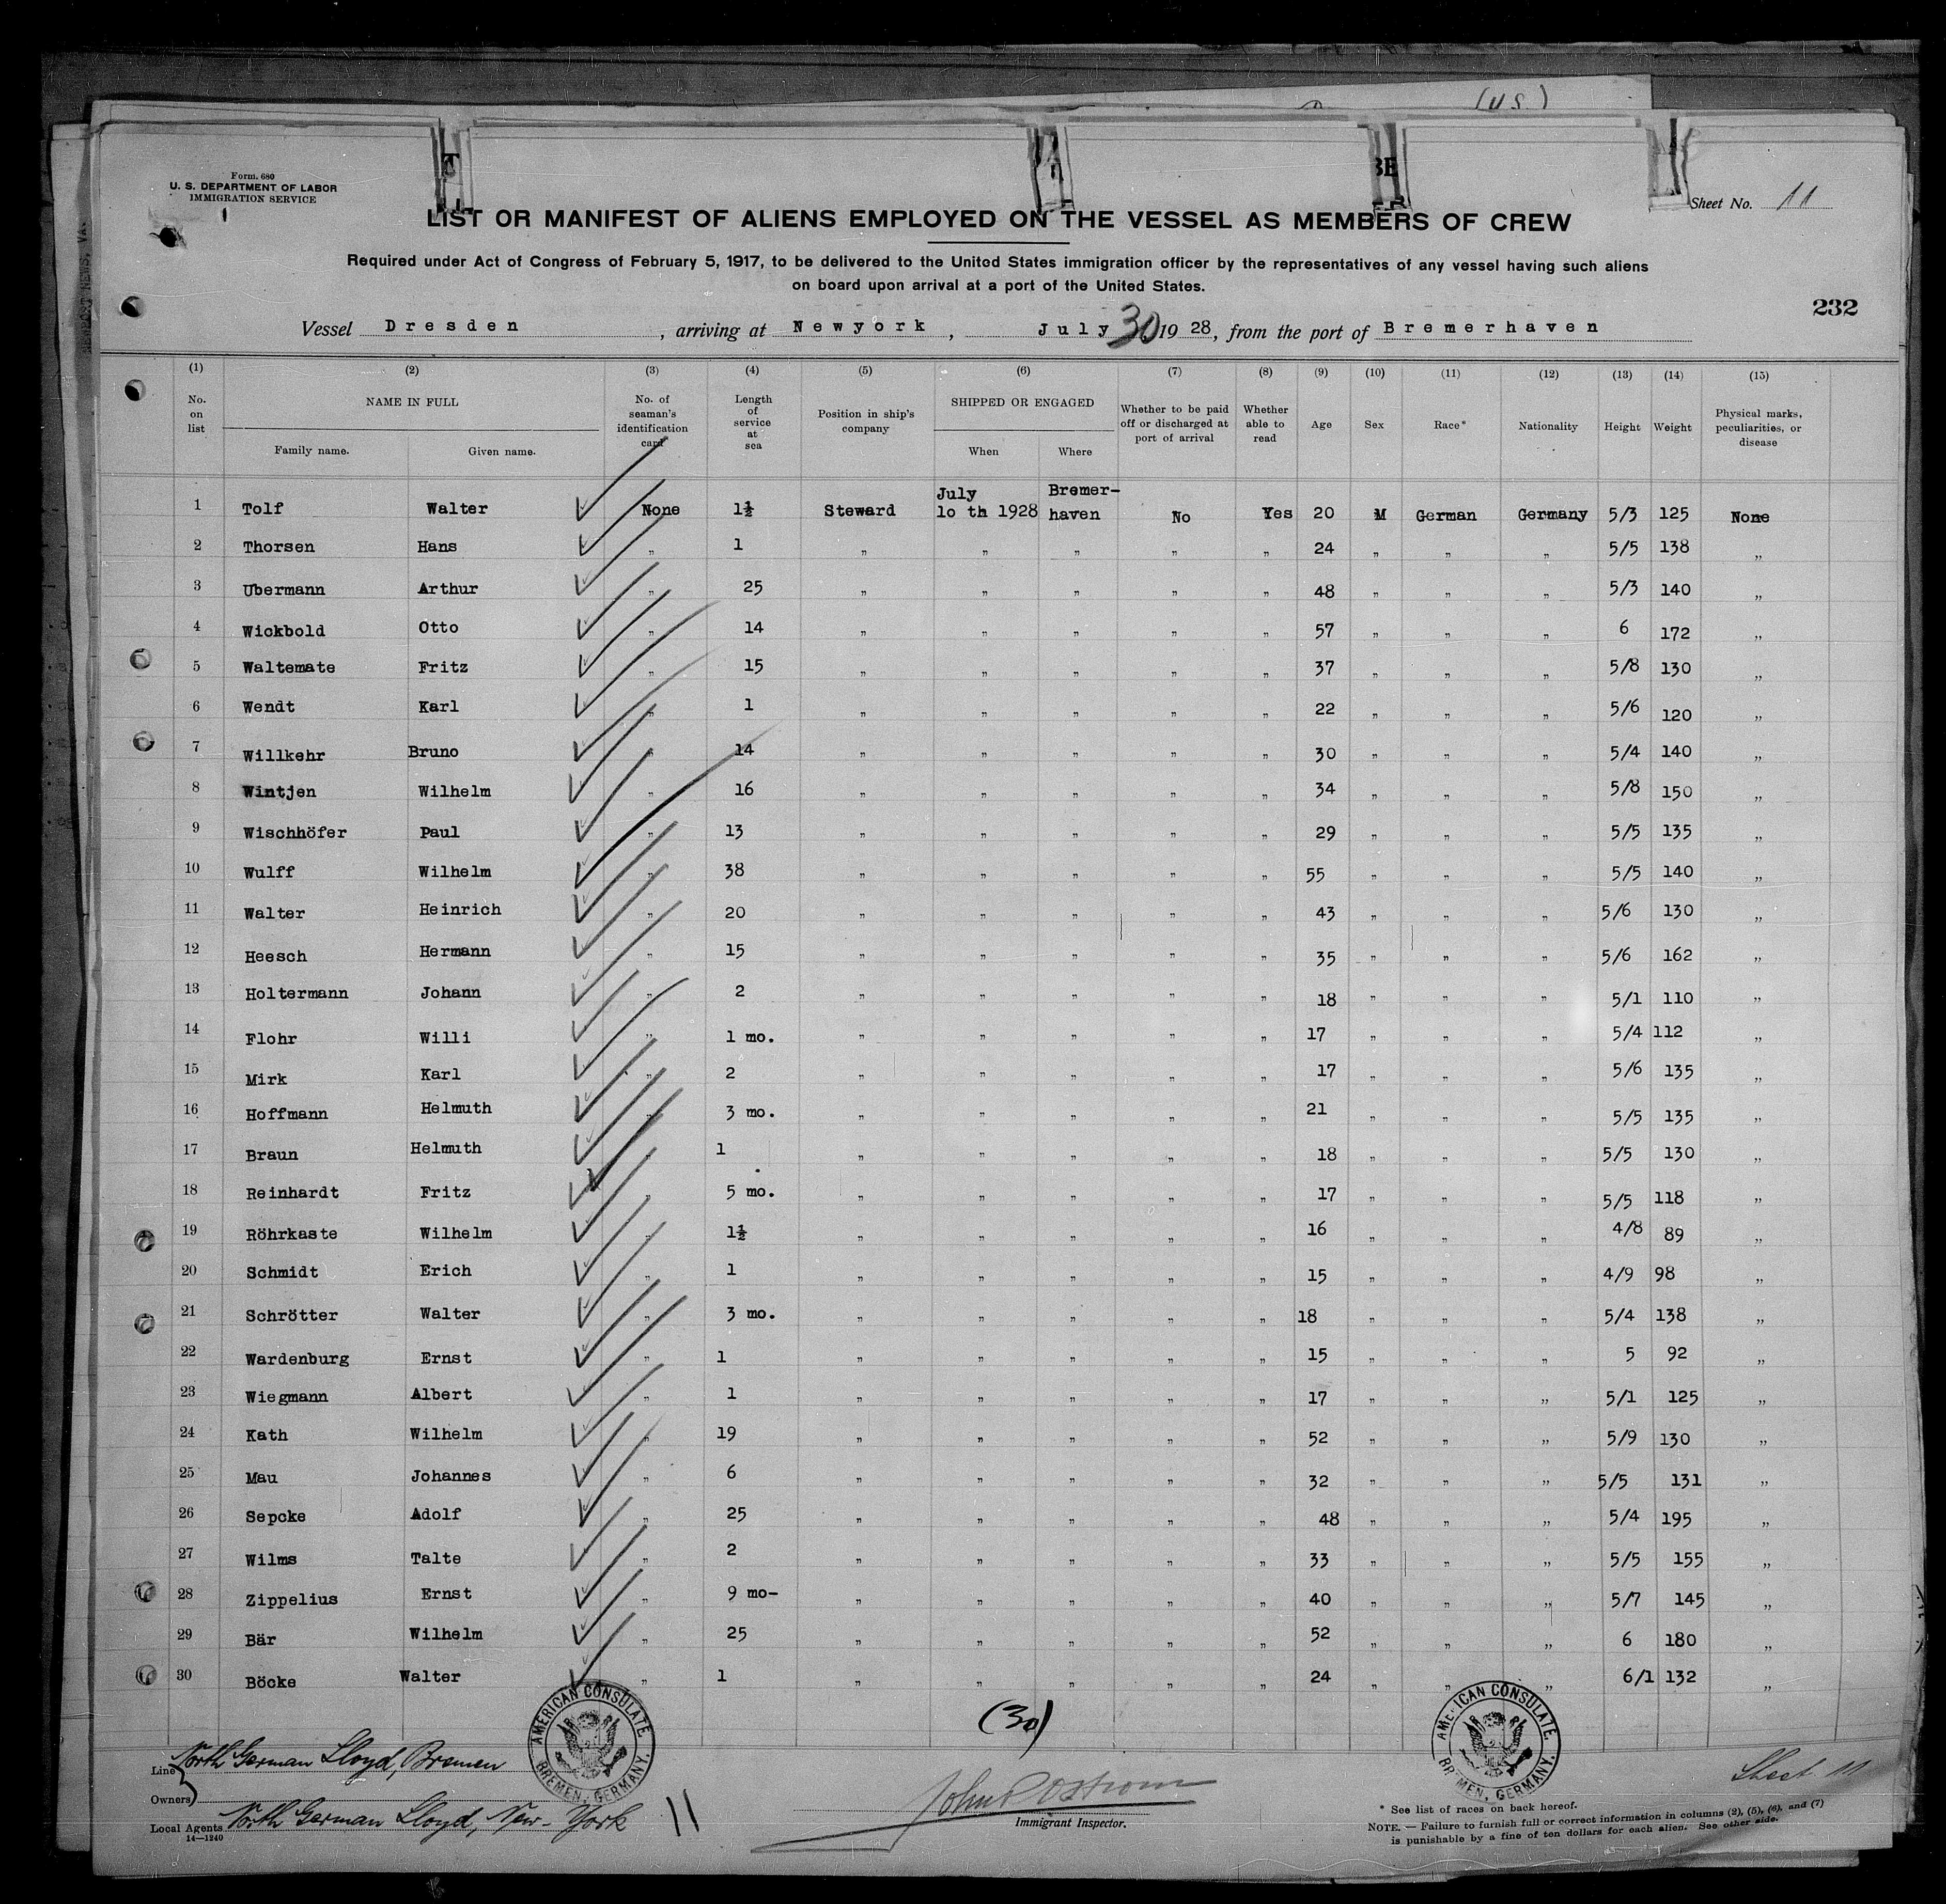 (U S.)
Form. 680
U. S. DEPARTMENT OF LABOR
IMMIGRATION SERVICE
Sheet No. 11
LIST OR MANIFEST OF ALIENS EMPLOYED ON THE VESSEL AS MEMBERS OF CREW
Required under Act of Congress of February 5, 1917, to be delivered to the United States immigration officer by the representatives of any vessel having such aliens
on board upon arrival at a port of the United States.
232
Vessel Dresden, arriving at Newyork, July 30 1928, from the port of Bremerhaven
(1) (2) (3) (4) (5) (6) (7) (8) (9) (10) (11) (12) (13) (14) (15)
No. on list NAME IN FULL Family name. Given name. No. of seaman's identification card Length of service at sea Position in ship's company SHIPPED OR ENGAGED When Where Whether to be paid off or discharged at port of arrival Whether able to read Age Sex Race* Nationality Height Weight Physical marks, peculiarities, or disease
1 Tolf Walter None 1½ Steward July 10 th 1928 Bremer-haven No Yes 20 M German Germany 5/3 125 None
2 Thorsen Hans „ 1 „ „ „ „ „ 24 „ „ „ 5/5 138 „
3 Ubermann Arthur „ 25 „ „ „ „ „ 48 „ „ „ 5/3 140 „
4 Wickbold Otto „ 14 „ „ „ „ „ 57 „ „ „ 6 172 „
5 Waltemate Fritz „ 15 „ „ „ „ „ 37 „ „ „ 5/8 130 „
6 Wendt Karl „ 1 „ „ „ „ „ 22 „ „ „ 5/6 120 „
7 Willkehr Bruno „ 14 „ „ „ „ „ 30 „ „ „ 5/4 140 „
8 Wintjen Wilhelm „ 16 „ „ „ „ „ 34 „ „ „ 5/8 150 „
9 Wischhöfer Paul „ 13 „ „ „ „ „ 29 „ „ „ 5/5 135 „
10 Wulff Wilhelm „ 38 „ „ „ „ „ 55 „ „ „ 5/5 140 „
11 Walter Heinrich „ 20 „ „ „ „ „ 43 „ „ „ 5/6 130 „
12 Heesch Hermann „ 15 „ „ „ „ „ 35 „ „ „ 5/6 162 „
13 Holtermann Johann „ 2 „ „ „ „ „ 18 „ „ „ 5/1 110 „
14 Flohr Willi „ 1 mo. „ „ „ „ „ 17 „ „ „ 5/4 112 „
15 Mirk Karl „ 2 „ „ „ „ „ 17 „ „ „ 5/6 135 „
16 Hoffmann Helmuth „ 3 mo. „ „ „ „ „ 21 „ „ „ 5/5 135 „
17 Braun Helmuth „ 1 „ „ „ „ „ 18 „ „ „ 5/5 130 „
18 Reinhardt Fritz „ 5 mo. „ „ „ „ „ 17 „ „ „ 5/5 118 „
19 Röhrkaste Wilhelm „ 1½ „ „ „ „ „ 16 „ „ „ 4/8 89 „
20 Schmidt Erich „ 1 „ „ „ „ „ 15 „ „ „ 4/9 98 „
21 Schrötter Walter „ 3 mo. „ „ „ „ „ 18 „ „ „ 5/4 138 „
22 Wardenburg Ernst „ 1 „ „ „ „ „ 15 „ „ „ 5 92 „
23 Wiegmann Albert „ 1 „ „ „ „ „ 17 „ „ „ 5/1 125 „
24 Kath Wilhelm „ 19 „ „ „ „ „ 52 „ „ „ 5/9 130 „
25 Mau Johannes „ 6 „ „ „ „ „ 32 „ „ „ 5/5 131 „
26 Sepcke Adolf „ 25 „ „ „ „ „ 48 „ „ „ 5/4 195 „
27 Wilms Talte „ 2 „ „ „ „ „ 33 „ „ „ 5/5 155 „
28 Zippelius Ernst „ 9 mo- „ „ „ „ „ 40 „ „ „ 5/7 145 „
29 Bär Wilhelm „ 25 „ „ „ „ „ 52 „ „ „ 6 180 „
30 Böcke Walter „ 1 „ „ „ „ „ 24 „ „ „ 6/1 132 „
(30)
AMERICAN CONSULATE
BREMEN, GERMANY.
AMERICAN CONSULATE
BREMEN, GERMANY.
Line North German Lloyd, Bremen
Owners
Local Agents North German Lloyd, New-York
14—1240
11
John Ostrom
Immigrant Inspector.
Sheet 11
* See list of races on back hereof.
NOTE. — Failure to furnish full or correct information in columns (2), (5), (6), and (7)
is punishable by a fine of ten dollars for each alien. See other side.